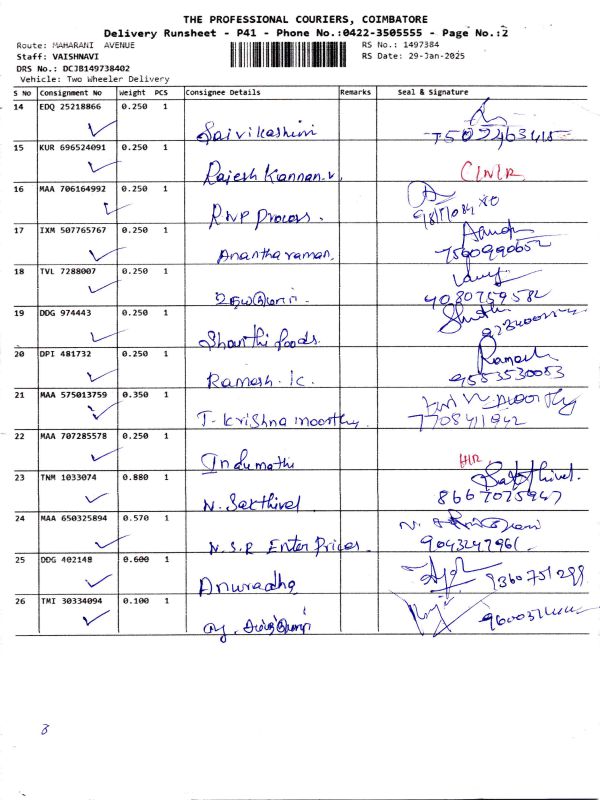 THE PROFESSIONAL COURIERS, COIMBATORE
Delivery Runsheet - P41 - Phone No.:0422-3505555 - Page No.:2
Route: MAHARANI AVENUE
RS No.: 1497384
Staff: VAISHNAVI
RS Date: 29-Jan-2025
DRS No.: DCJB149738402
Vehicle: Two Wheeler Delivery
S No Consignment No Weight PCS Consignee Details Remarks Seal & Signature
14 EDQ 25218866 0.250 1
15 KUR 696524091 0.250 1
Rajesh Kannan.v.
16 MAA 706164992 0.250 1
RNP Process.
17 IXM 507765767 0.250 1
Anantharaman.
7500990652
18 TVL 7288007 0.250 1
4080759582
19 DDG 974443 0.250 1
Shanthi foods.
20 DPI 481732 0.250 1
Ramesh
Ramesh. K.
9553530053
21 MAA 575013759 0.350 1
T. Krishna moorthy.
7708411842
22 MAA 707285578 0.250 1
Indumathi
23 TNM 1033074 0.880 1
Sakthivel.
N. Sakthivel
8667075947
24 MAA 650325894 0.570 1
N.S.R Enterprices.
9043247961.
25 DDG 402148 0.600 1
Anuradha
9360751299
26 TMI 30334094 0.100 1